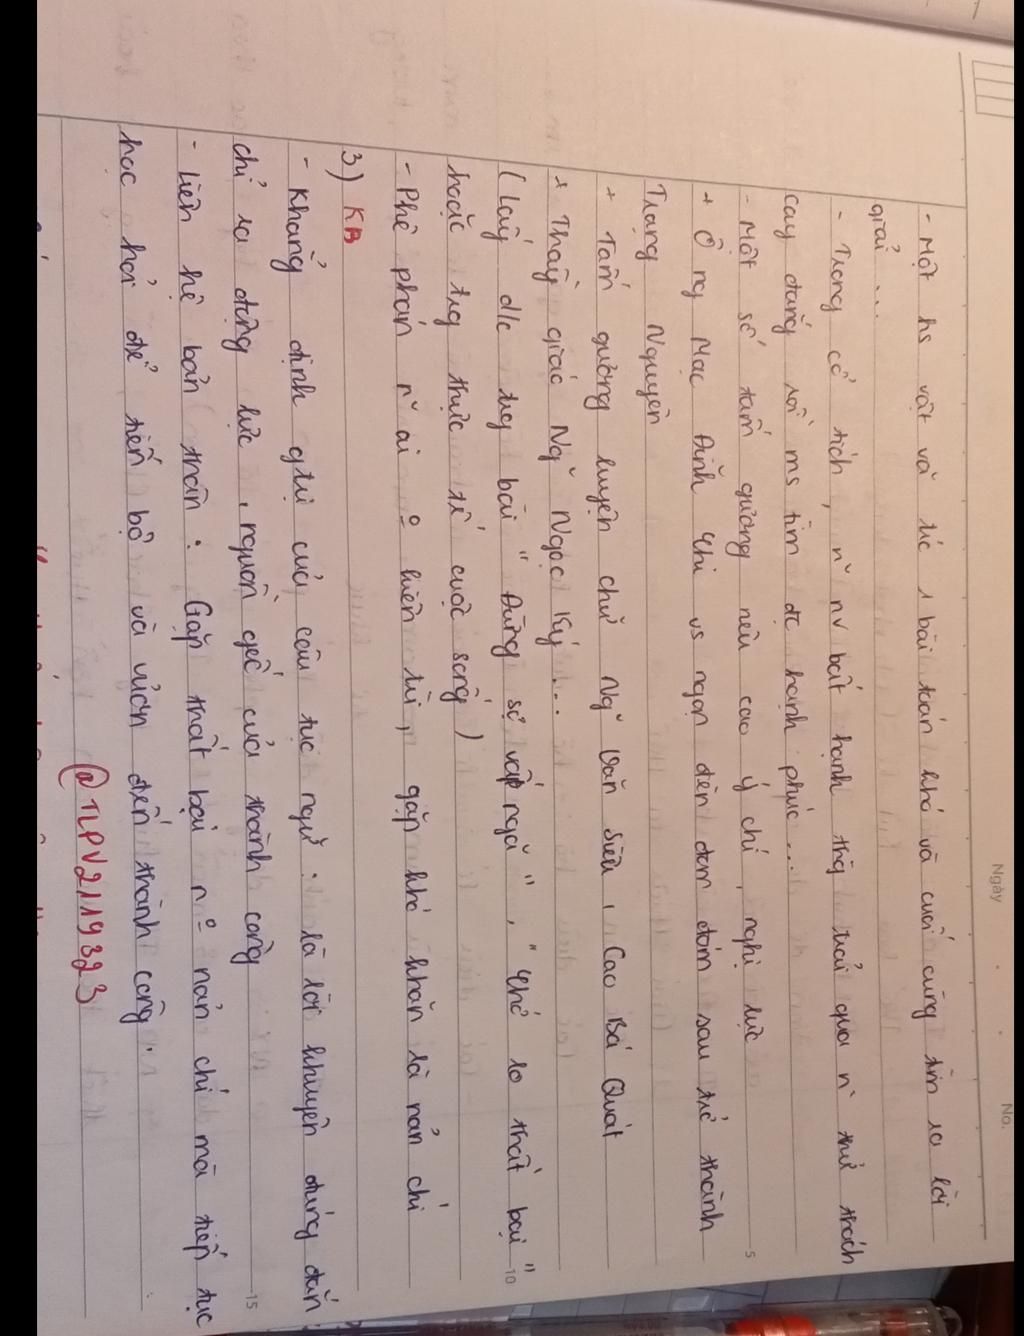 Ngày
No.
- Một hs vật vã tìc 1 bài toán khó và cuối cùng tìm ra lời
giải ...
- Trong cổ tích, n~ nv bất hạnh thg trải qua n~ thử thách
cay đắng rồi ms tìm đc hạnh phúc ...
- Một số tấm gương nêu cao ý chí, nghị lực
5
+ Ông Mạc Đĩnh Chi vs ngọn đèn đom đóm sau trở thành
Trạng Nguyên
+ Tấm gương luyện chữ Ng~ Văn Siêu, Cao Bá Quát
+ Thầy giáo Ng~ Ngọc Ký ...
(Lấy d/c trg bài "Đừng sợ vấp ngã", "Chớ lo thất bại"
10
hoặc trg thực tế cuộc sống)
- Phê phán n~ ai o hiền tì, gặp khó khăn là nản chí
3) KB
- Khẳng định gtrị của câu tục ngữ: là lời khuyên đúng đắn
chỉ ra động lực, nguồn gốc của thành công
15
- Liên hệ bản thân: Gặp thất bại n o nản chí mà tiếp tục
học hỏi để tiến bộ và vươn đến thành công.
@TLPV2119323